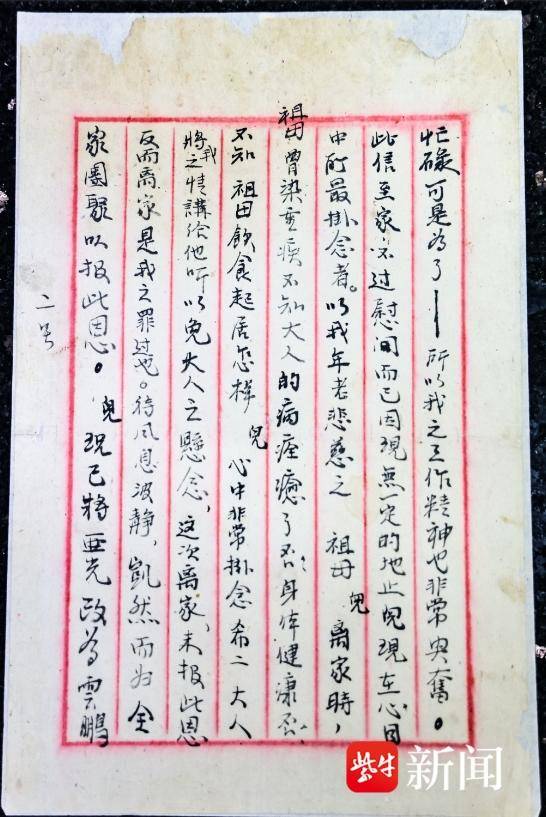 忙碌可是為了——所以我之工作精神也非常兴奮。
此信至家不过慰问而已因現無一定的地止兒現在心目
中所最掛念者。以我年老悲慈之 祖母 兒 离家時，
祖母曾染重疾不知大人的病痊癒了否，身体健康否
不知 祖母飲食起居怎樣 兒 心中非常掛念希二大人
將我之情講给他听以免大人之懸念，这次离家，未报此恩
反而离家是我之罪过也。待风息波静，凱然而归全
家團聚以报此恩。 兒 現已將亜光改為雲鵬
二号
紫牛新闻